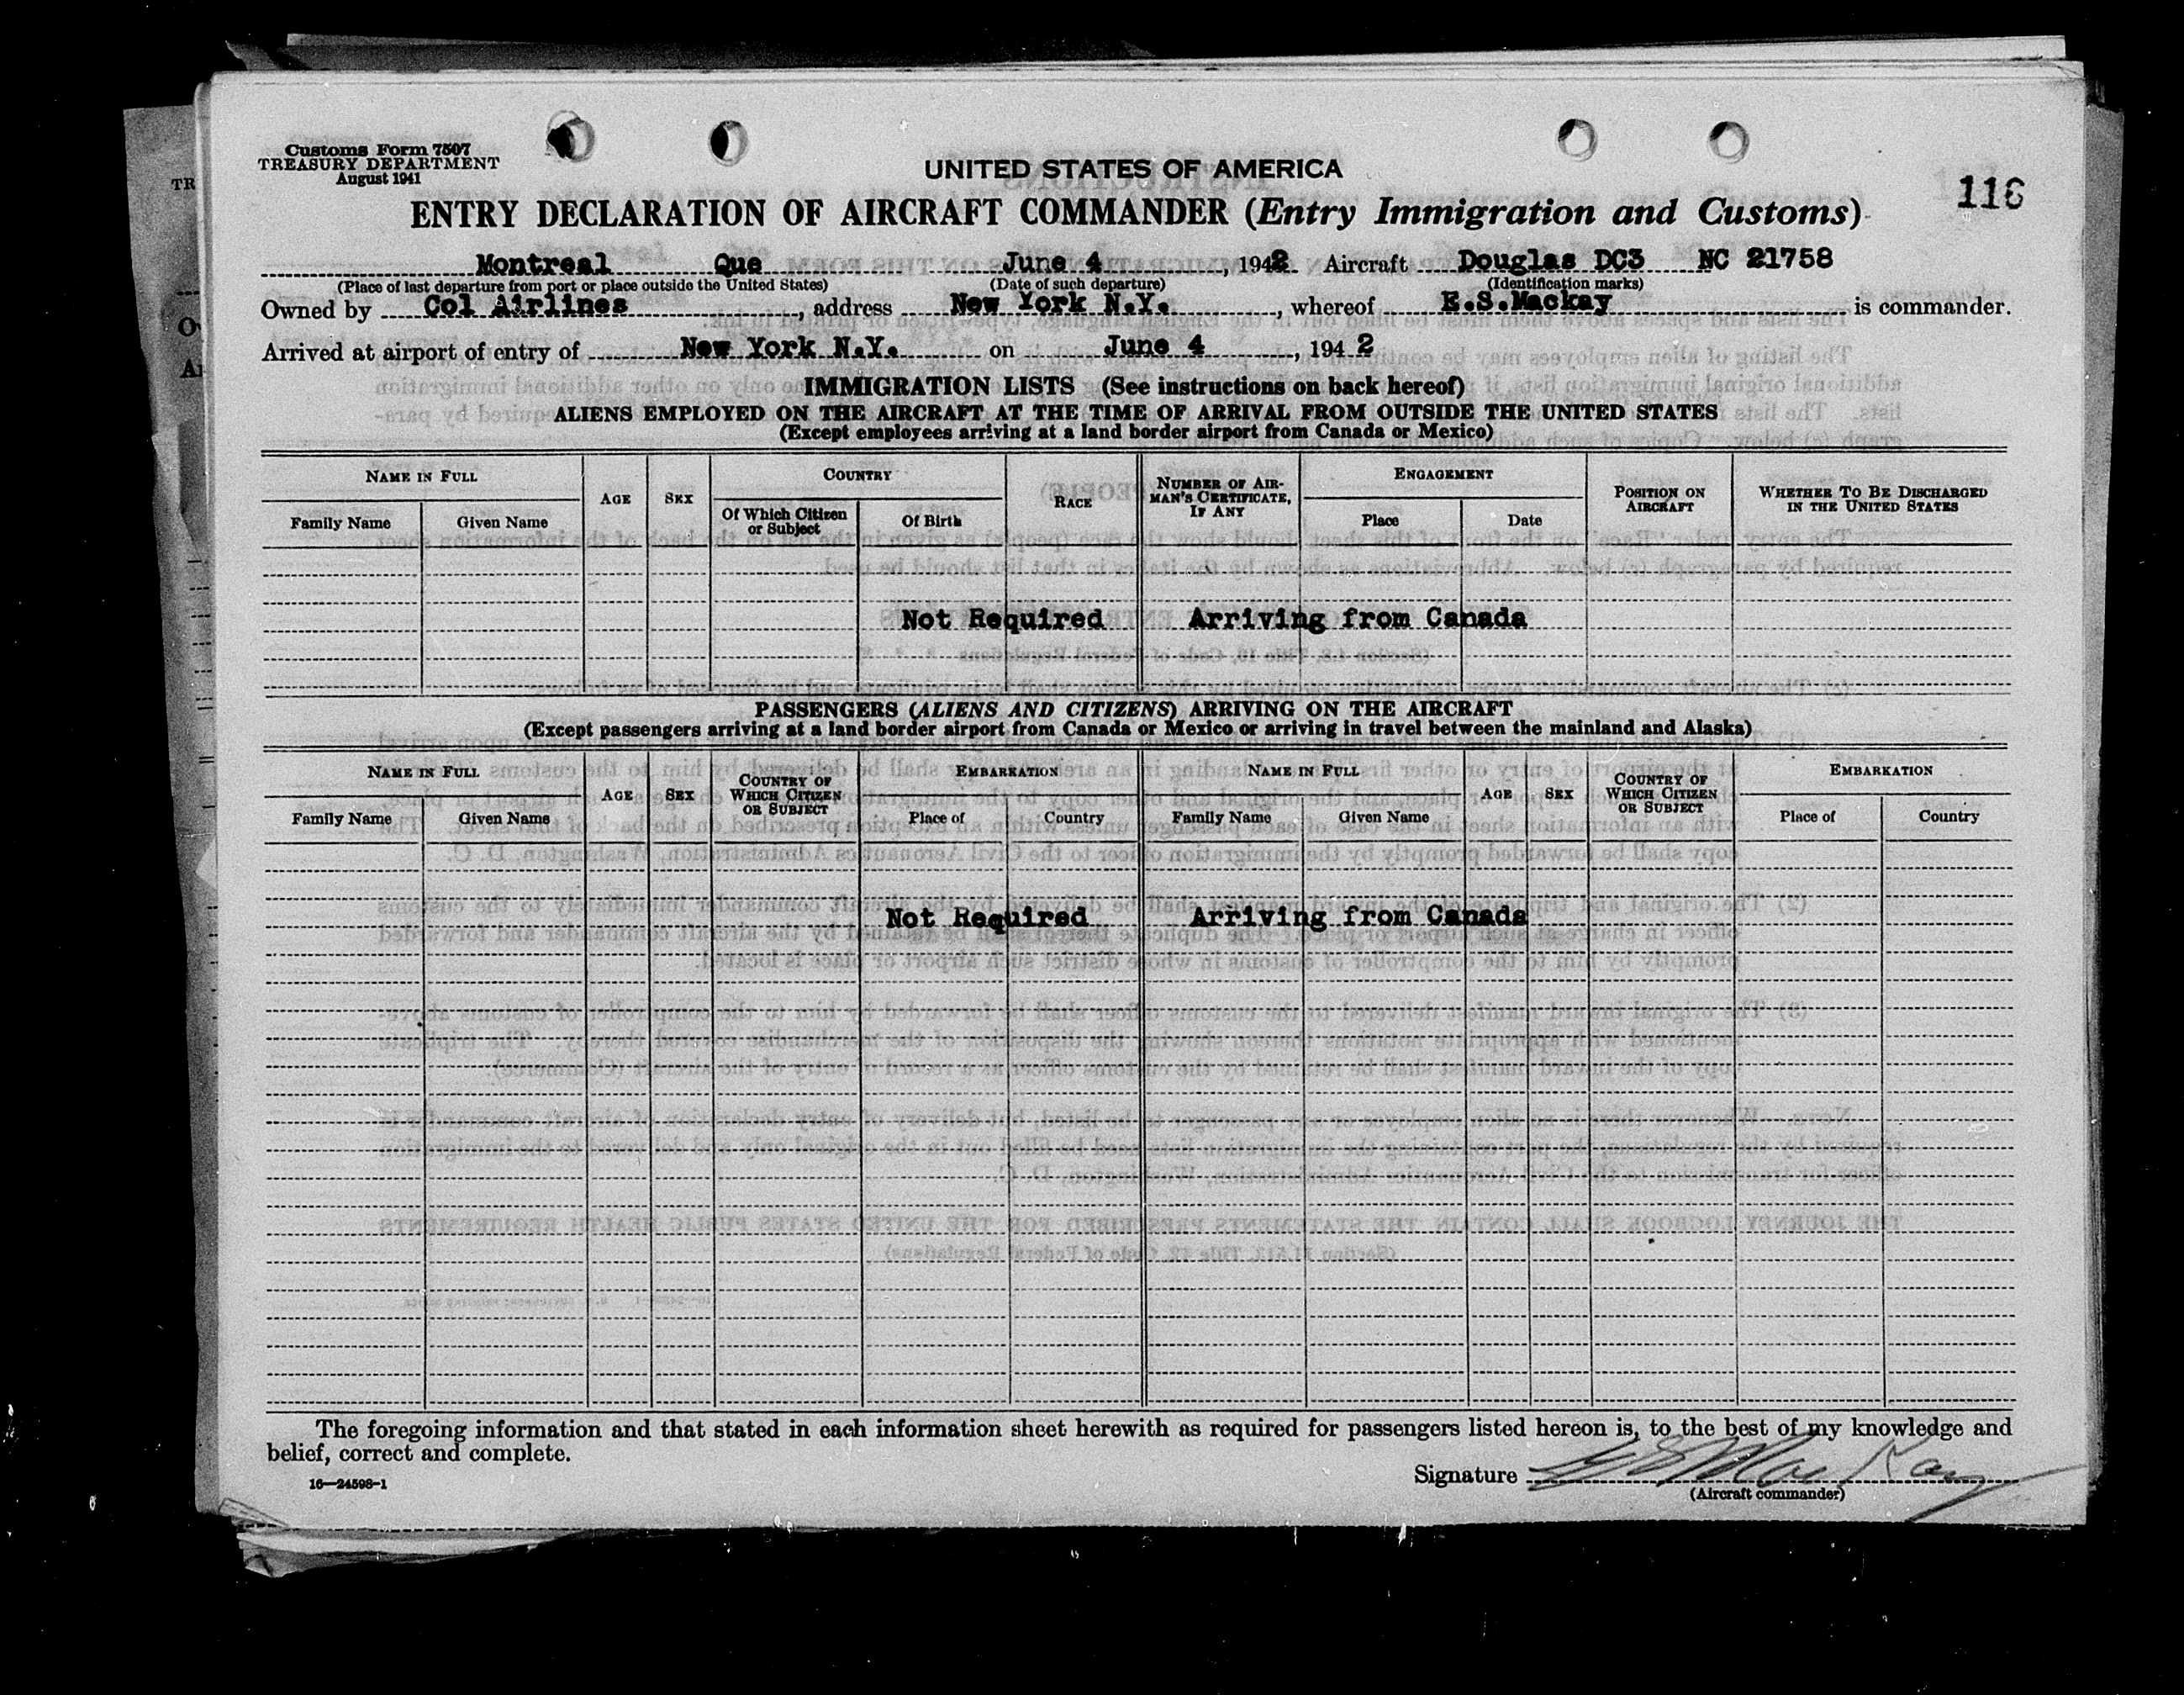 Customs Form 7507
TREASURY DEPARTMENT
August 1941
UNITED STATES OF AMERICA
116
ENTRY DECLARATION OF AIRCRAFT COMMANDER (Entry Immigration and Customs)
Montreal Que June 4, 1942 Aircraft Douglas DC3 NC 21758
(Place of last departure from port or place outside the United States) (Date of such departure) (Identification marks)
Owned by Col Airlines, address New York N.Y., whereof E.S.Mackay is commander.
Arrived at airport of entry of New York N.Y. on June 4, 1942
IMMIGRATION LISTS (See instructions on back hereof)
ALIENS EMPLOYED ON THE AIRCRAFT AT THE TIME OF ARRIVAL FROM OUTSIDE THE UNITED STATES
(Except employees arriving at a land border airport from Canada or Mexico)
NAME IN FULL AGE SEX COUNTRY RACE NUMBER OF AIRMAN'S CERTIFICATE, IF ANY ENGAGEMENT POSITION ON AIRCRAFT WHETHER TO BE DISCHARGED IN THE UNITED STATES
Family Name Given Name Of Which Citizen or Subject Of Birth Place Date
Not Required Arriving from Canada
PASSENGERS (ALIENS AND CITIZENS) ARRIVING ON THE AIRCRAFT
(Except passengers arriving at a land border airport from Canada or Mexico or arriving in travel between the mainland and Alaska)
NAME IN FULL AGE SEX COUNTRY OF WHICH CITIZEN OR SUBJECT EMBARKATION NAME IN FULL AGE SEX COUNTRY OF WHICH CITIZEN OR SUBJECT EMBARKATION
Family Name Given Name Place of Country Family Name Given Name Place of Country
Not Required Arriving from Canada
The foregoing information and that stated in each information sheet herewith as required for passengers listed hereon is, to the best of my knowledge and
belief, correct and complete.
Signature E S MacKay
(Aircraft commander)
16—24598-1